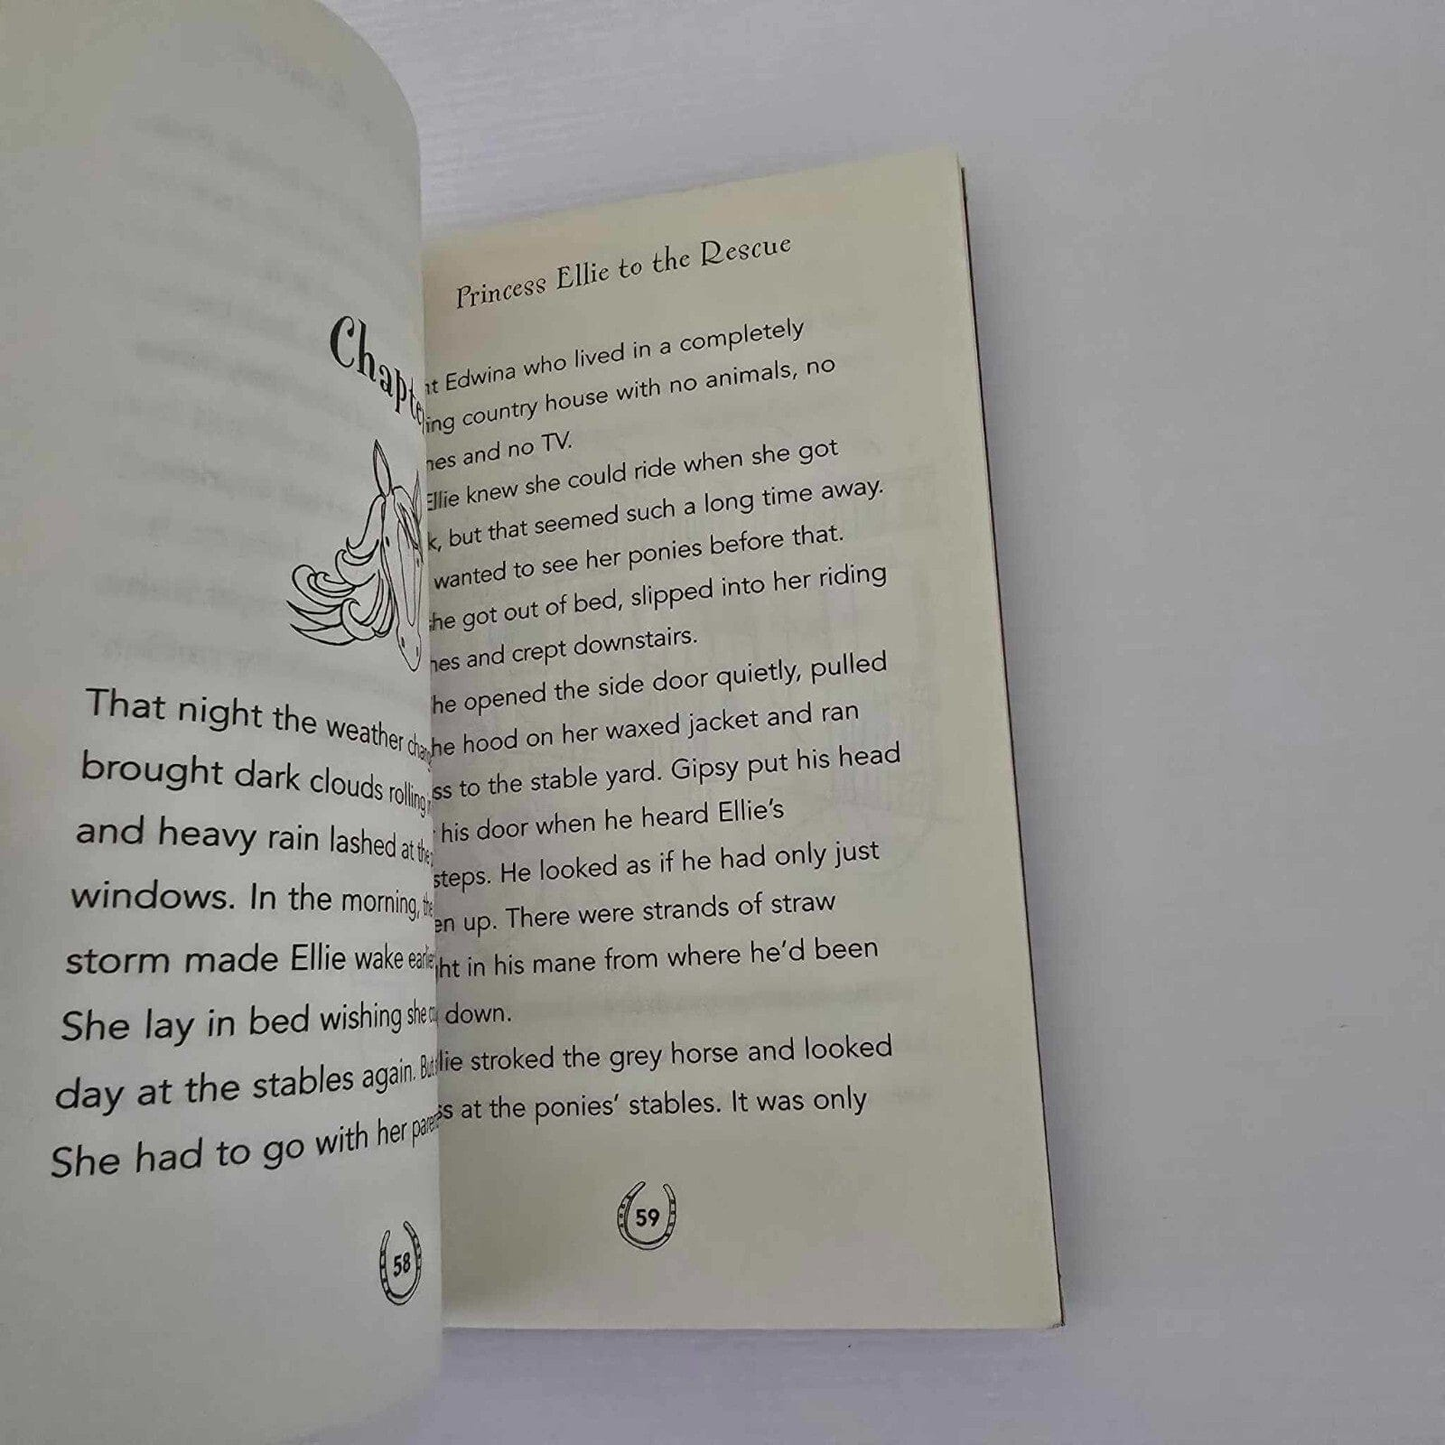 Chapte
That night the weather
brought dark clouds rolling
and heavy rain lashed at the
windows. In the morning, the
storm made Ellie wake
She lay in bed wishing she
day at the stables again. But
She had to go with her
58
Princess Ellie to the Rescue
Edwina who lived in a completely
country house with no animals, no
and no TV.
Ellie knew she could ride when she got
but that seemed such a long time away.
wanted to see her ponies before that.
he got out of bed, slipped into her riding
and crept downstairs.
he opened the side door quietly, pulled
he hood on her waxed jacket and ran
ss to the stable yard. Gipsy put his head
his door when he heard Ellie's
steps. He looked as if he had only just
en up. There were strands of straw
ht in his mane from where he'd been
down.
lie stroked the grey horse and looked
ss at the ponies' stables. It was only
59